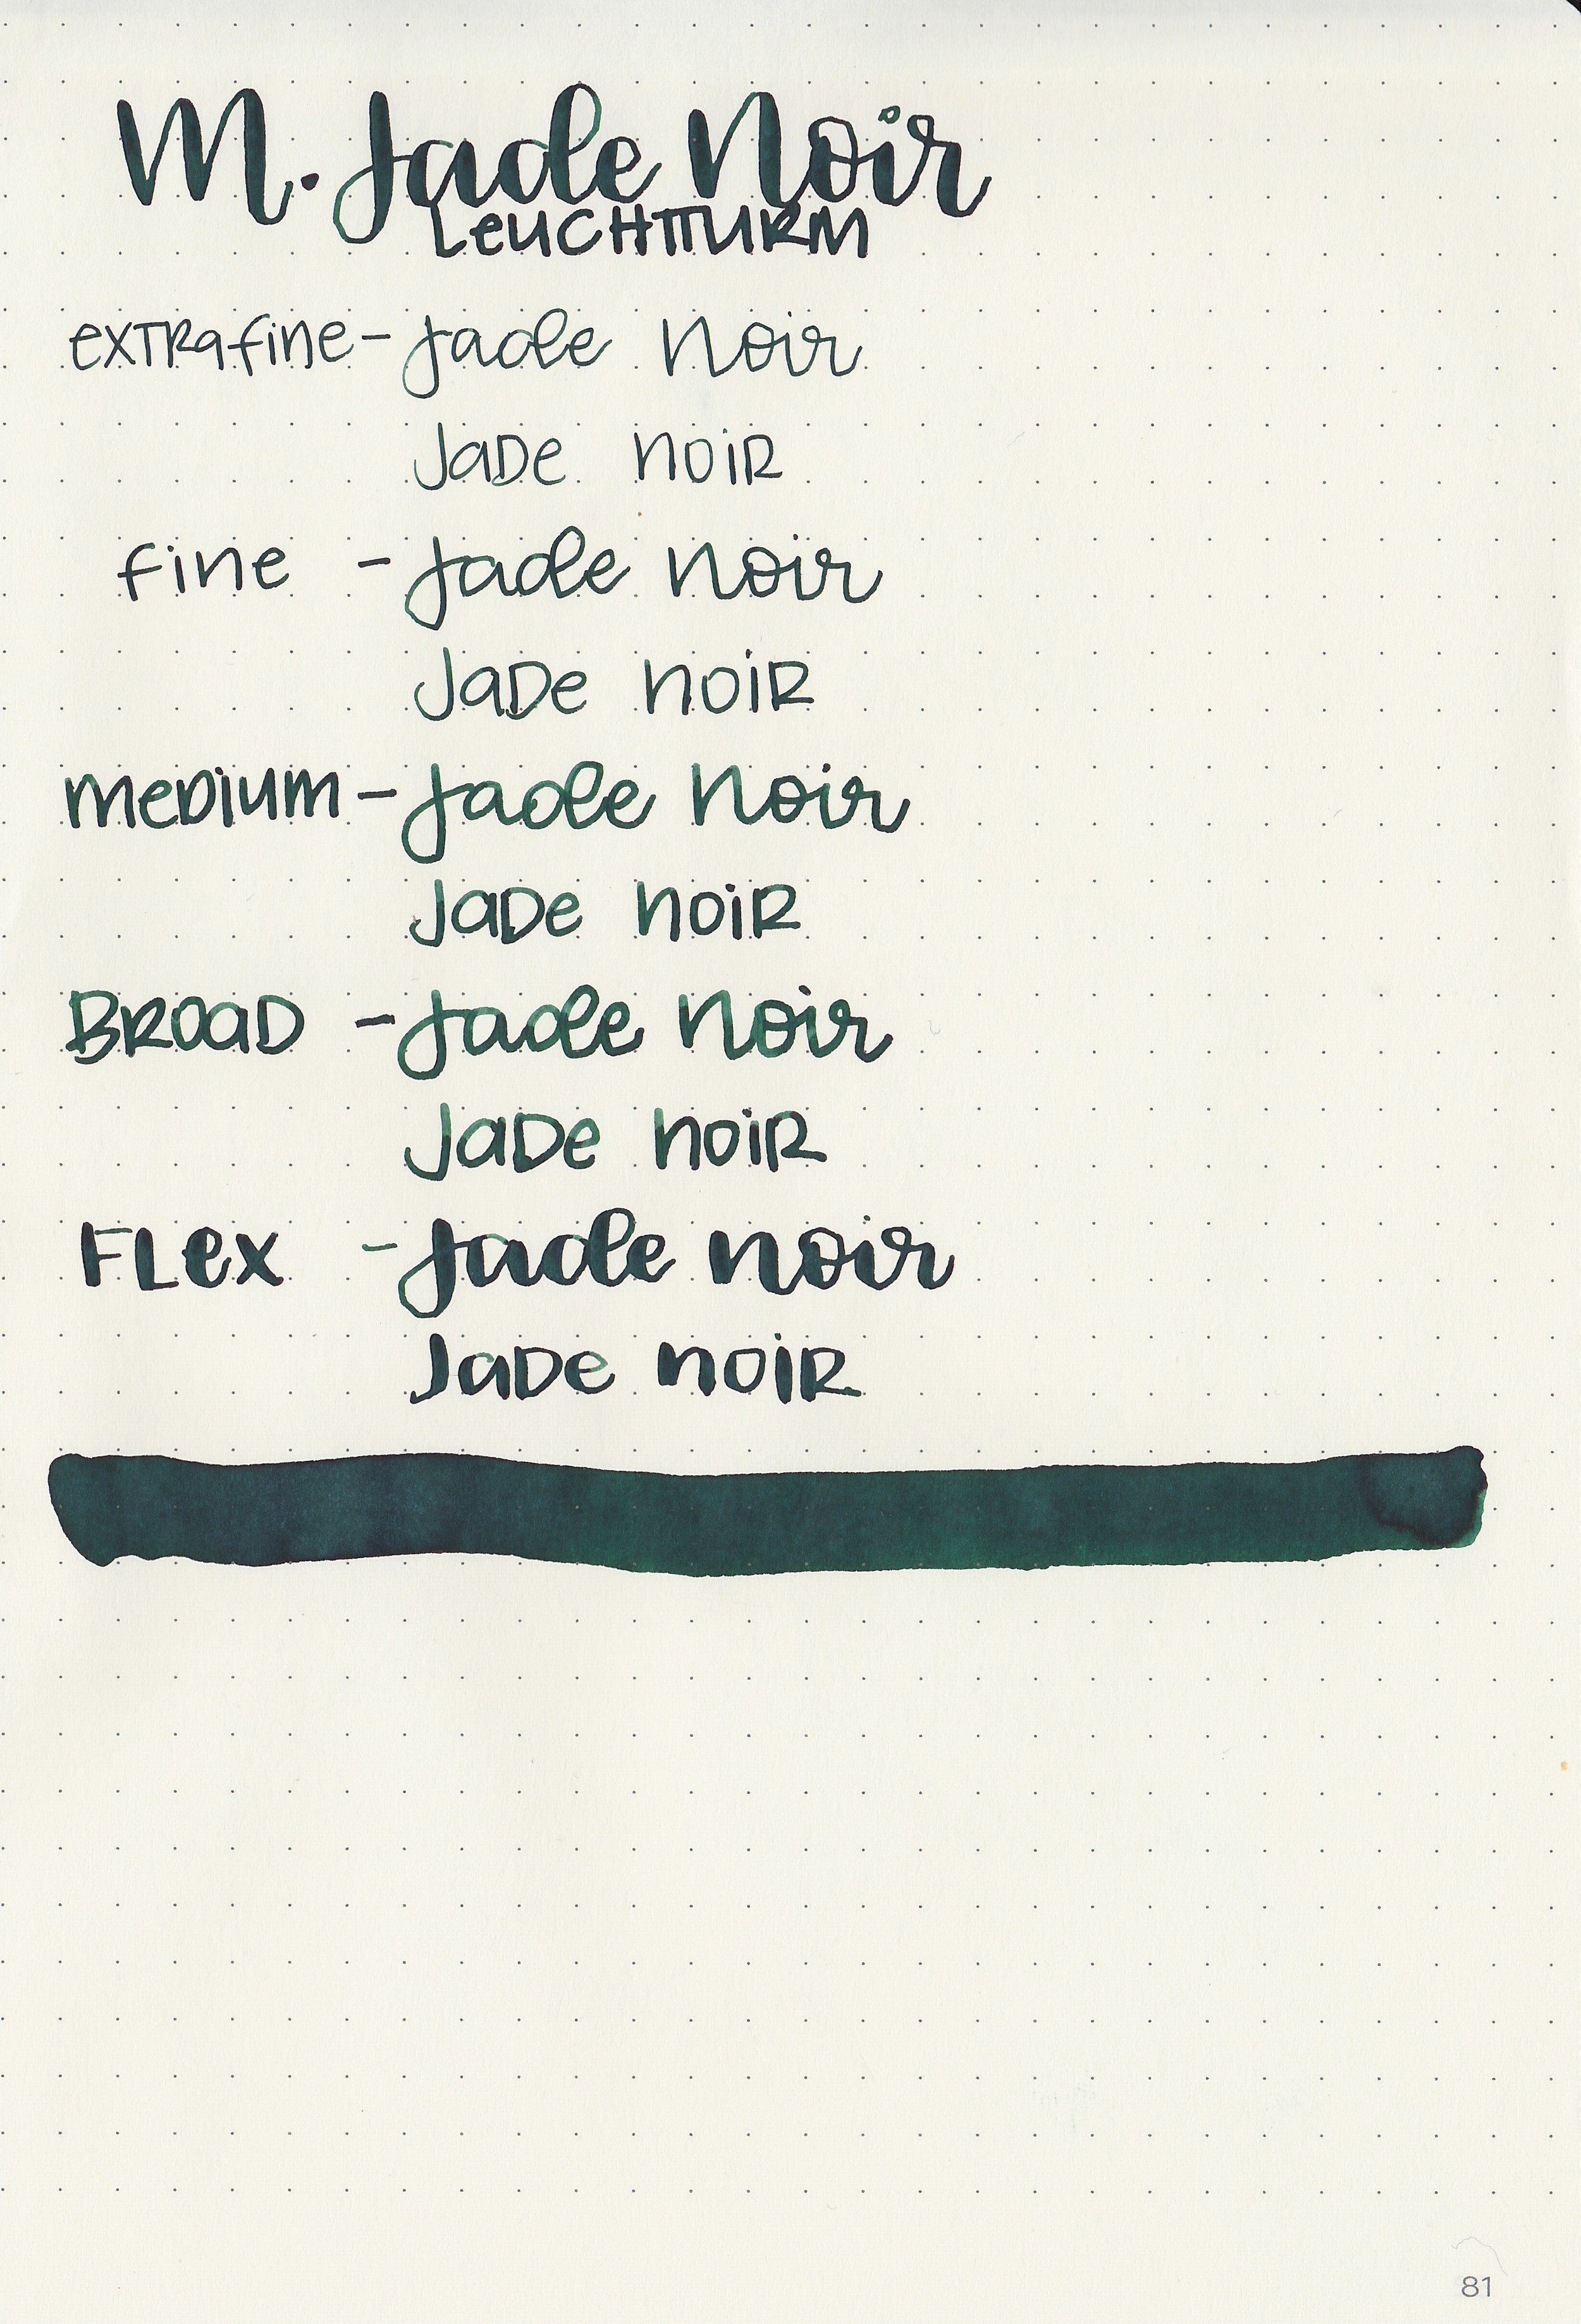 M. Jade Noir
LEUCHTTURM
extra fine - Jade Noir
Jade noir
fine - Jade Noir
Jade noir
medium - Jade Noir
Jade noir
Broad - Jade Noir
Jade noir
Flex - Jade noir
Jade noir
81